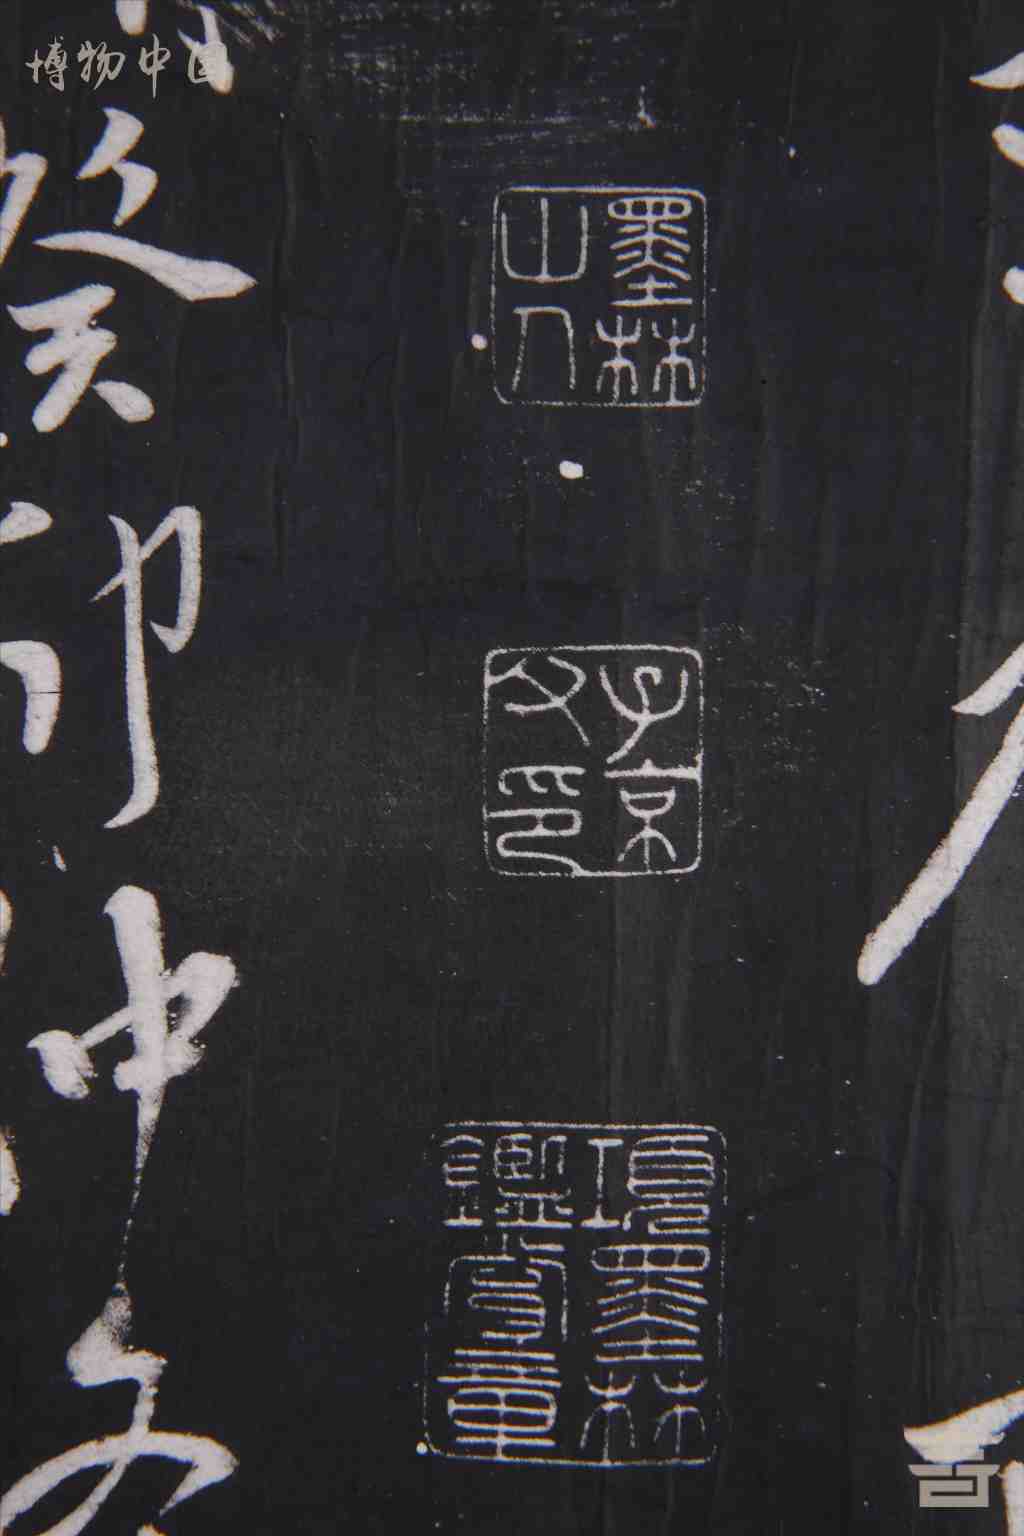 博物中国
墨林
山人
子京
父印
項墨林
鑑賞章
癸卯中